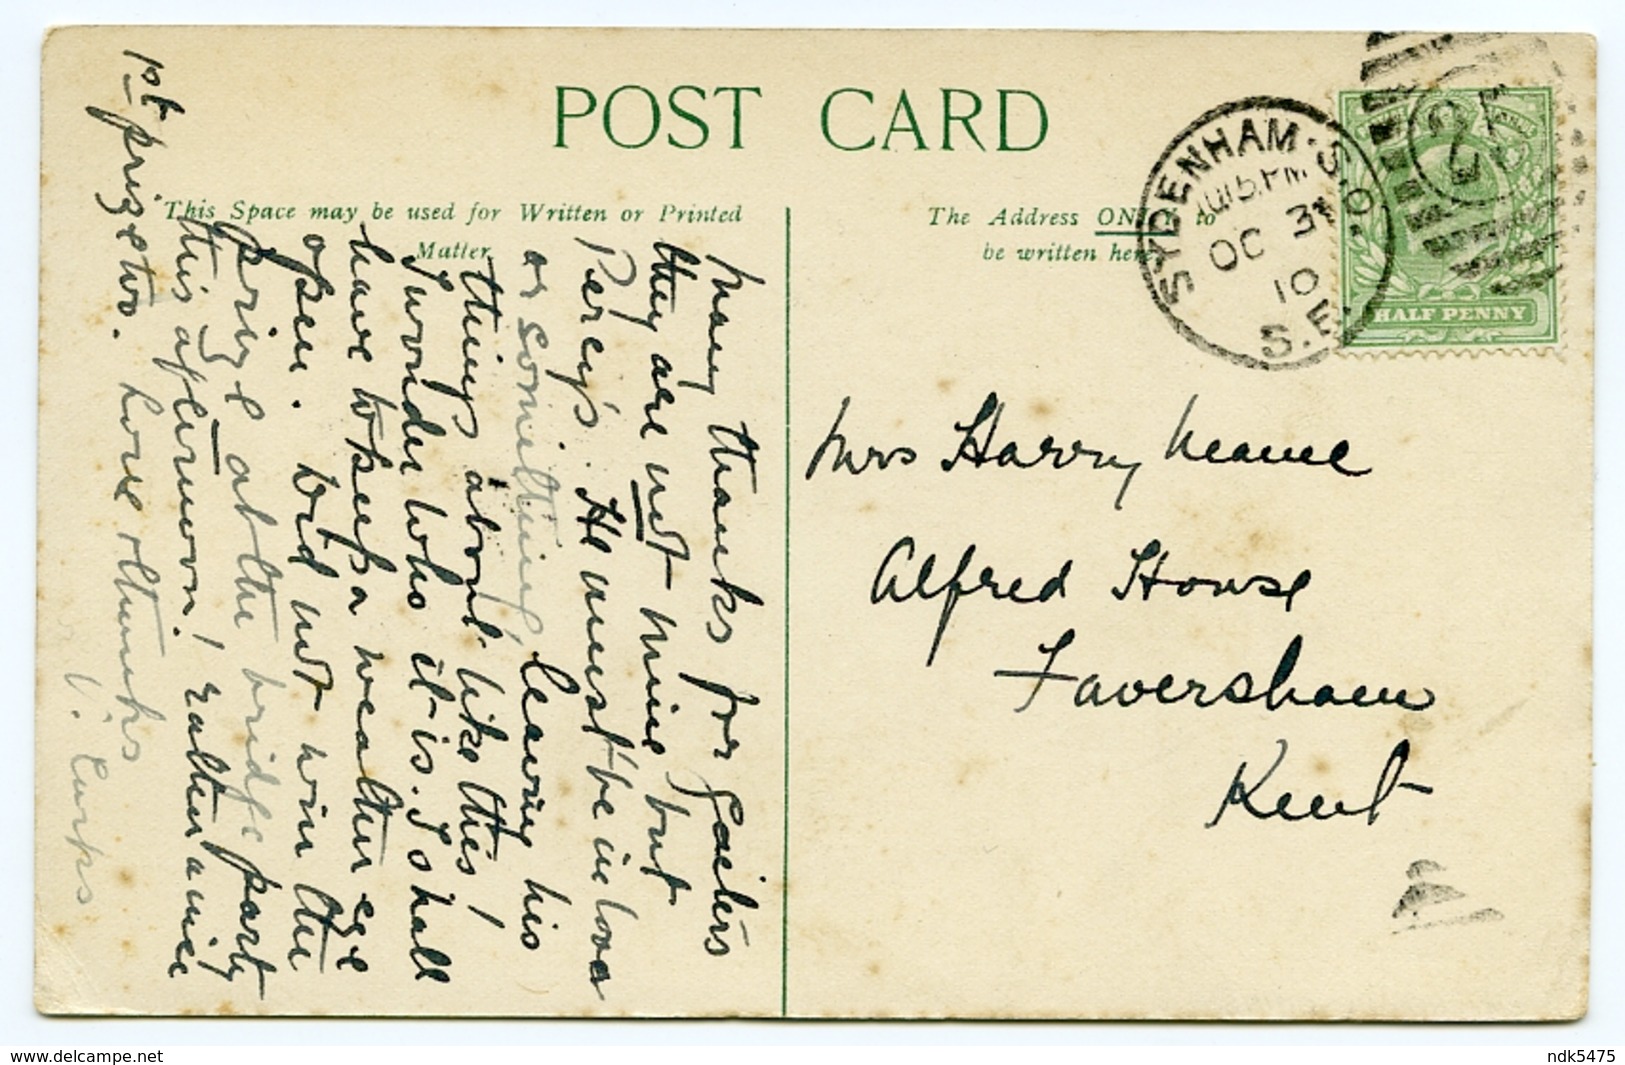 POST CARD
This Space may be used for Written or Printed
Matter.
The Address ONLY to
be written here
SYDENHAM.S.O.
10 15 PM
OC 31
10
S.E.
HALF PENNY
Many thanks for gaiters
they are not mine but
Percy's. He must be in love
or something, leaving his
things about like this!
I wonder who it is. I shall
have to keep a weather eye
open. Did not win the
prize at the bridge party
this afternoon! Rather a nice
1st prize too. Love & thanks
Mrs Harry Neame
Alfred House
Faversham
Kent
ndk5475
www.delcampe.net